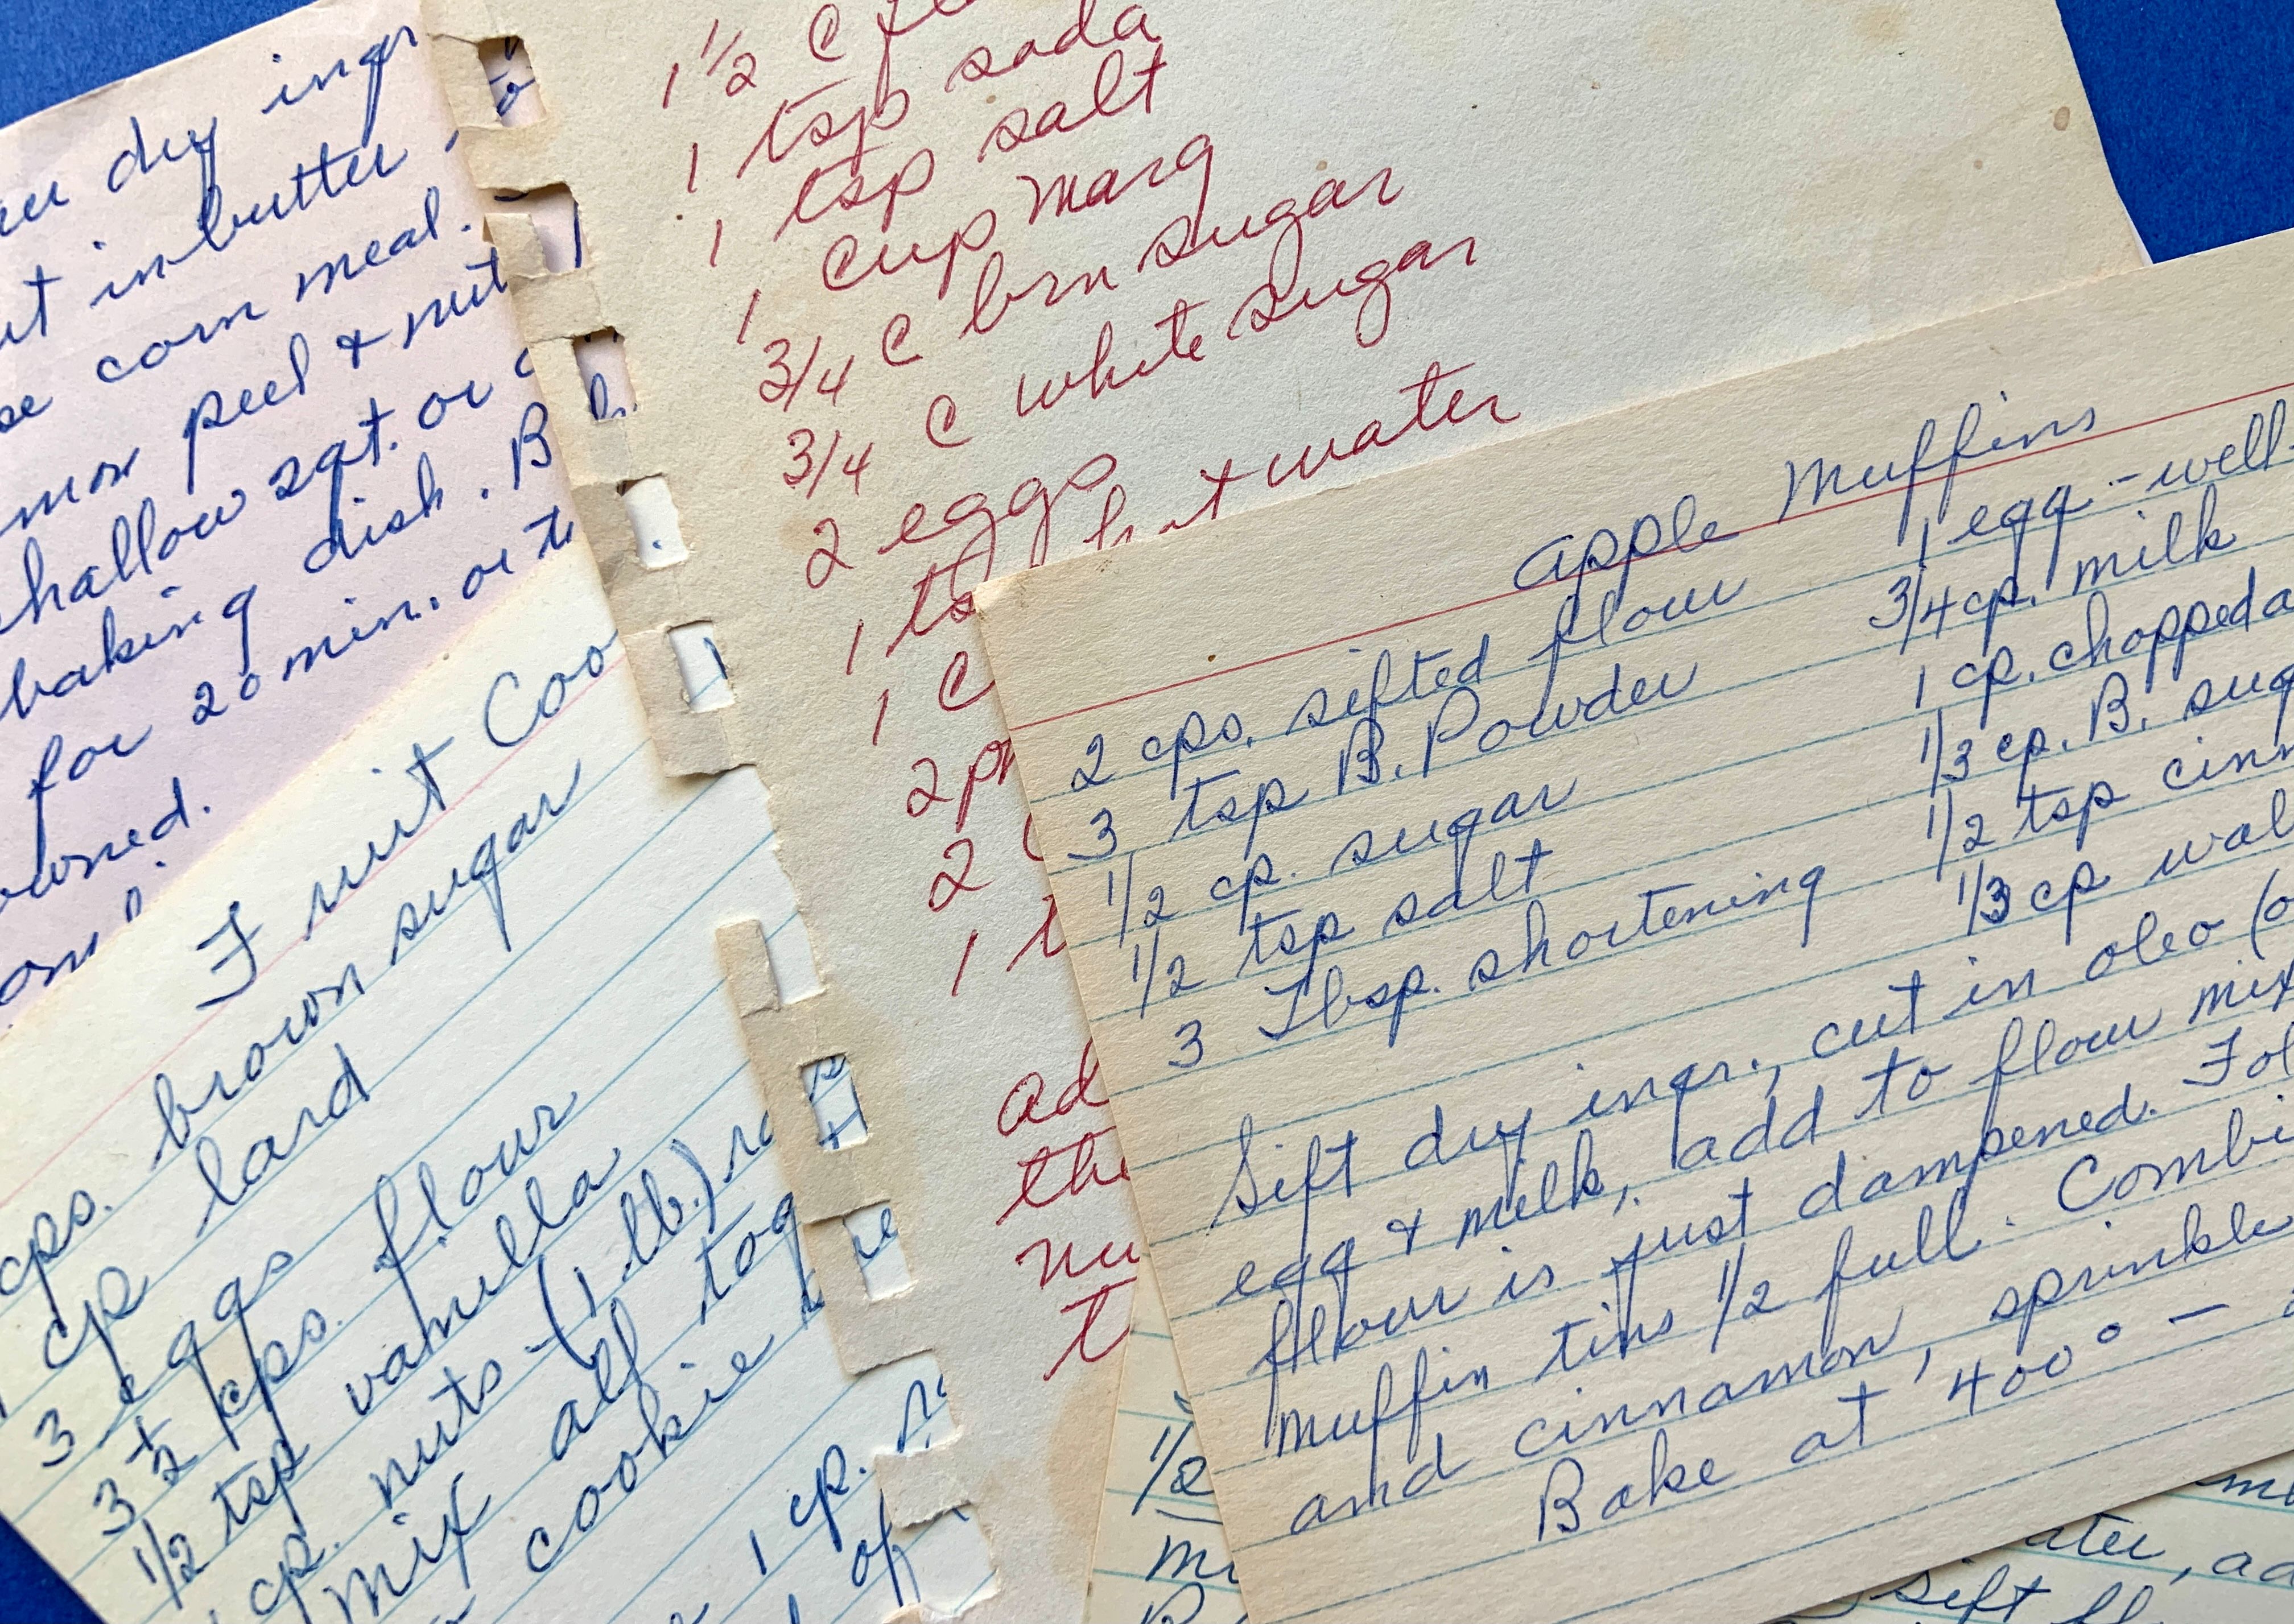 dry ingr
in butter,
corn meal.
peel & nut
hallow 2 qt. or
baking dish. B
for 20 min. or t
owned.
1 1/2 c
1 tsp soda
1 tsp salt
1 cup marg
3/4 c brn sugar
3/4 c white sugar
2 eggs
1 ts hot water
1 c
2
2
1 t
ad
the
nu
t
Fruit Coo
cps. brown sugar
cp lard
3 eggs
3 1/2 cps. flour
1/2 tsp vanilla
cp. nuts - (1 lb.)
mix all tog
cookie
1 cp.
of
Apple Muffins
2 cps. sifted flour
3 tsp B. Powder
1/2 cp. sugar
1/2 tsp salt
3 Tbsp. shortening
1 egg - well
3/4 cp. milk
1 cp. chopped a
1/3 cp. B. sug
1/2 tsp cinn
1/3 cp wal
Sift dry ingr., cut in oleo (o
egg & milk, add to flour mix
flour is just dampened. Fol
muffin tins 1/2 full. Combi
and cinnamon, sprinkle
Bake at 400° -
1/2
mi
ater, ad
Sift fl